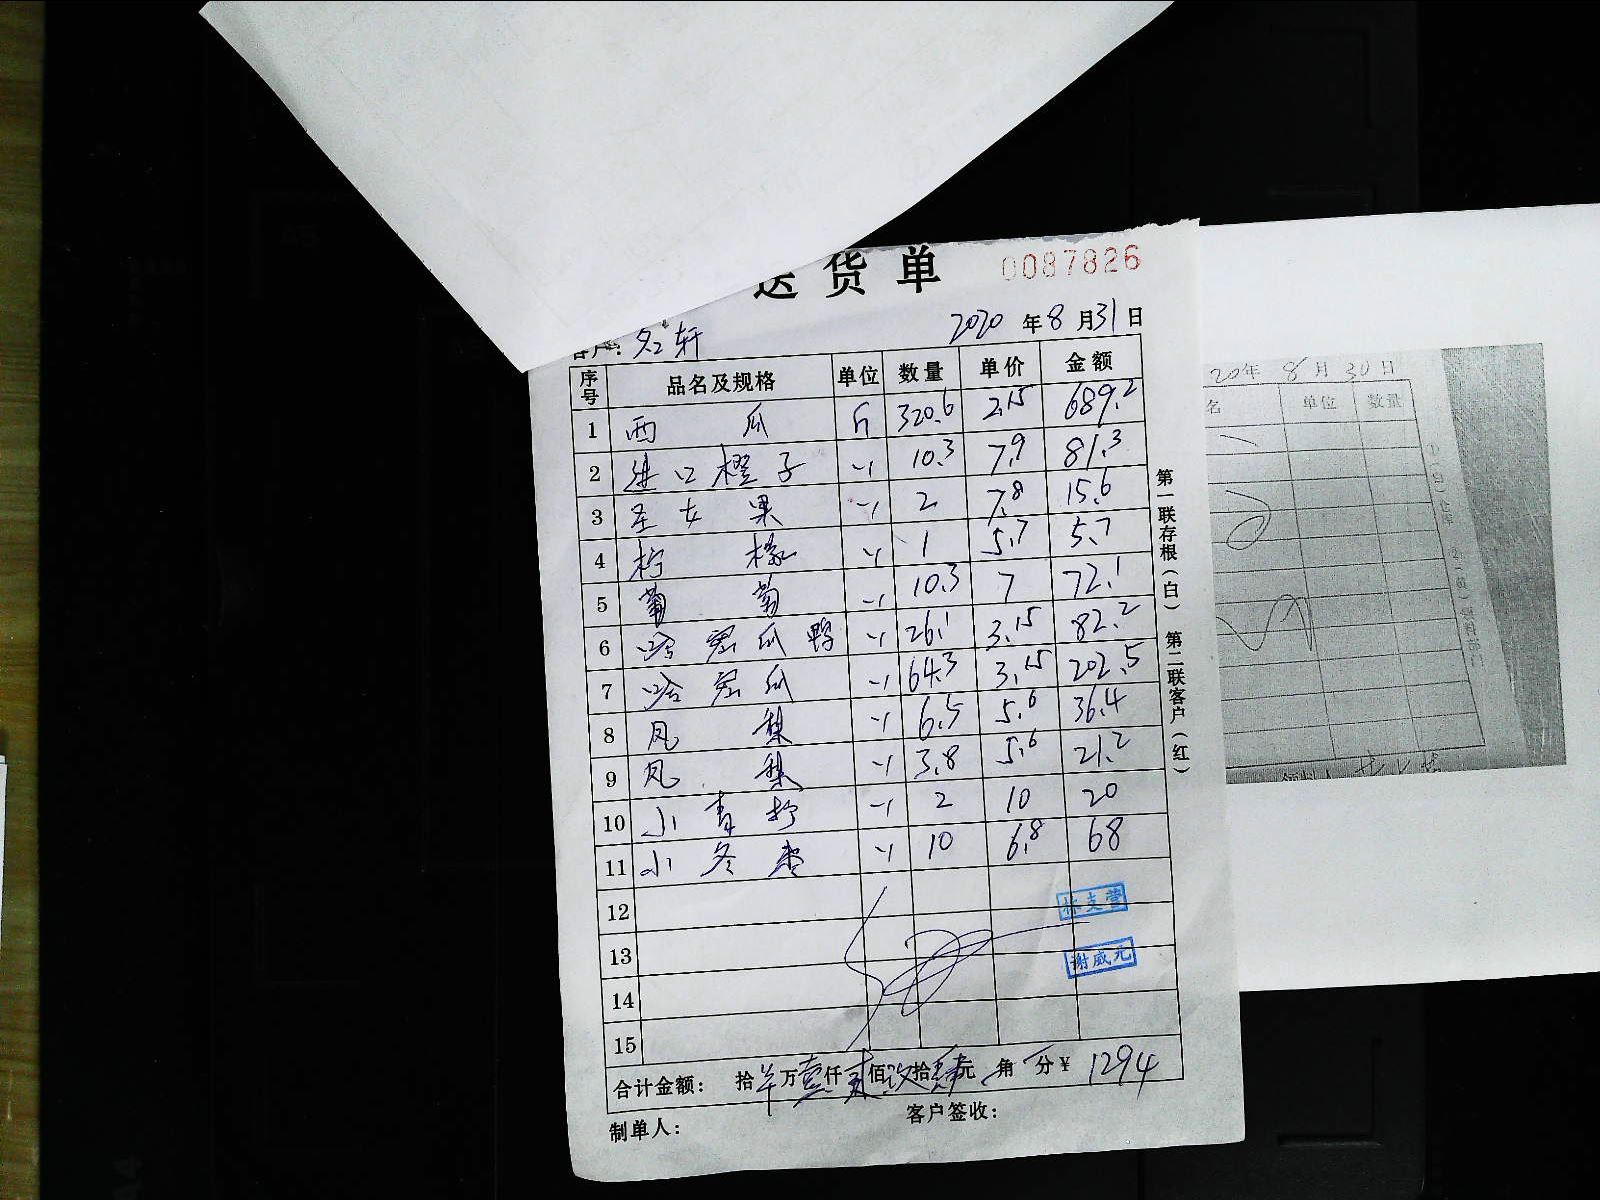 送货单 0087826
客户：名轩 2020年8月31日
序号 品名及规格 单位 数量 单价 金额
1 西瓜 斤 320.6 2.15 689.2
2 进口橙子 〃 10.3 7.9 81.3
3 圣女果 〃 2 7.8 15.6
4 柠檬 〃 1 5.7 5.7
5 葡萄 〃 10.3 7 72.1
6 哈密瓜鸭 〃 26.1 3.15 82.2
7 哈密瓜 〃 64.3 3.15 202.5
8 凤梨 〃 6.5 5.6 36.4
9 凤梨 〃 3.8 5.6 21.2
10 小青柠 〃 2 10 20
11 小冬枣 〃 10 6.8 68
12
林支营
13
谢威光
14
15
合计金额： 拾 万壹仟贰佰玖拾肆元 角 分¥ 1294
制单人： 客户签收：
第一联存根（白） 第二联客户（红）
20年 8月30日
名 单位 数量